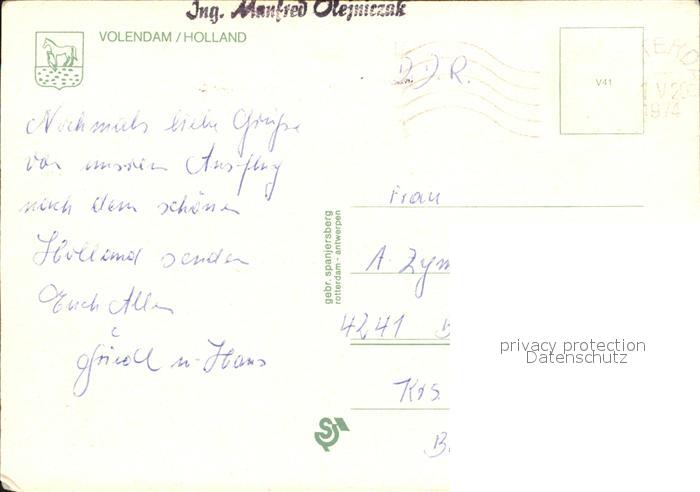 Ing. Manfred Olejniczak
VOLENDAM / HOLLAND
D.D.R.
V41
1974
Nochmals liebe Grüße
von unseren Ausflug
nach dem schönen
Holland senden
Euch Allen
Friedl u. Hans
gebr. spanjersberg
rotterdam - antwerpen
Frau
A. Zym
4241 B
Krs.
B.
privacy protection
Datenschutz